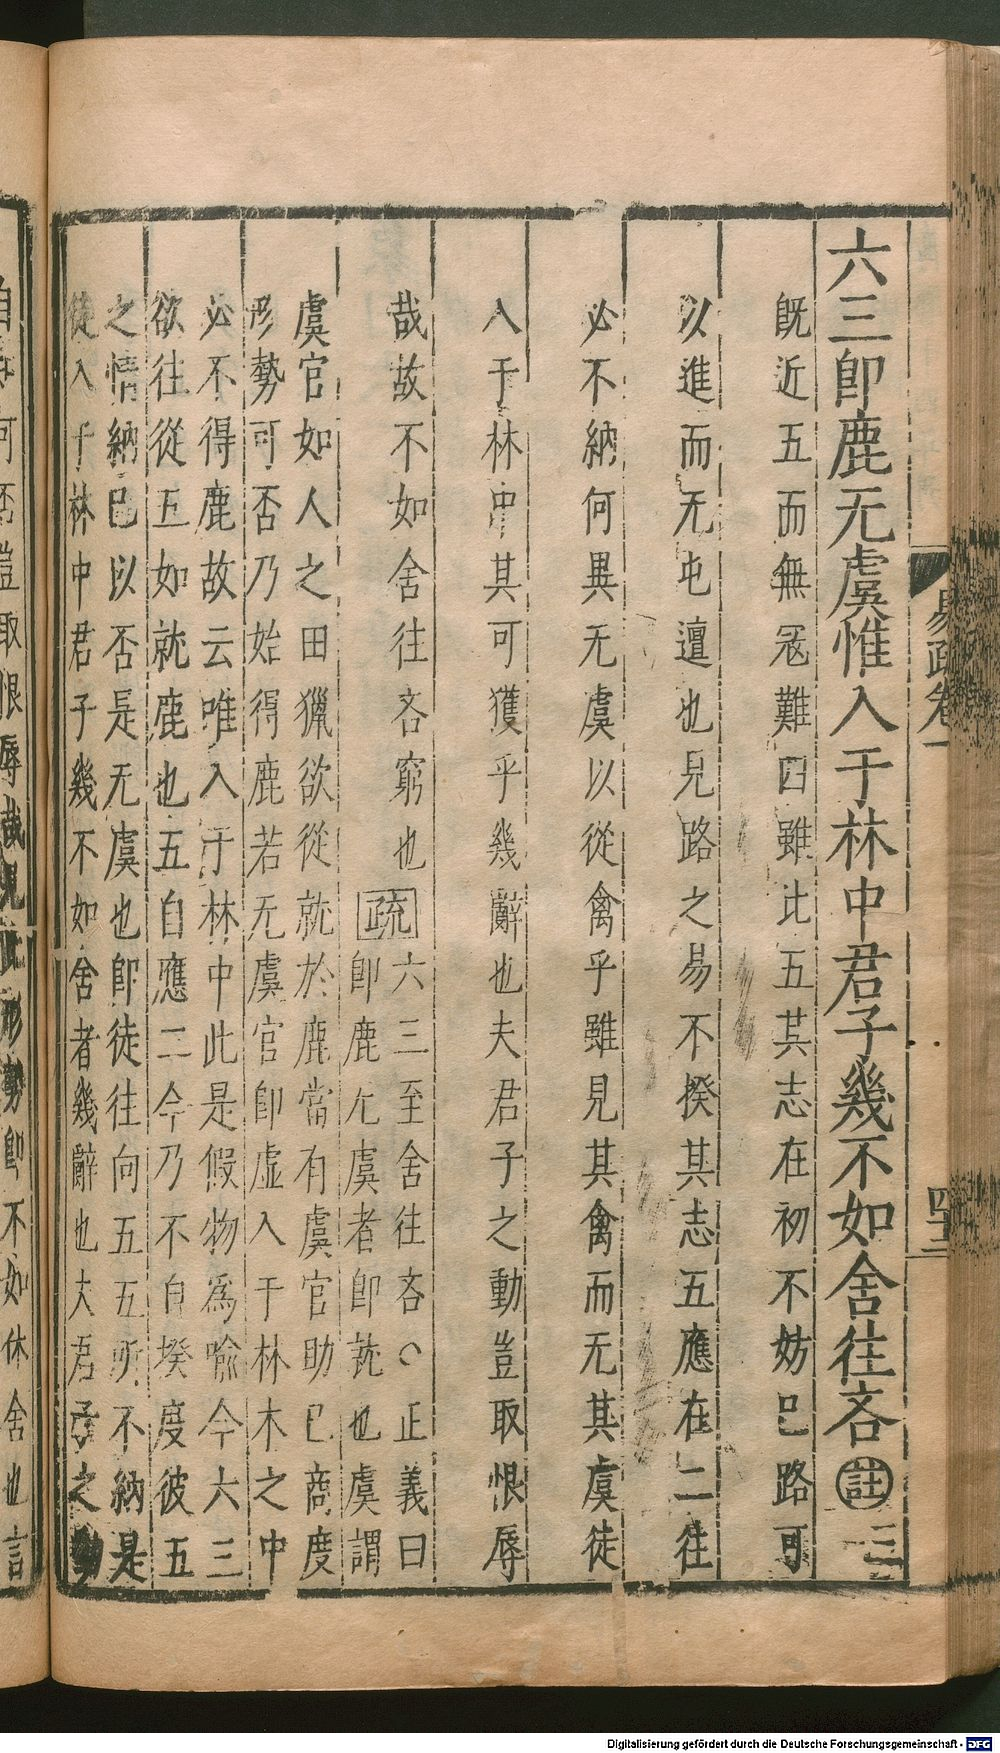 六三卽鹿无虞惟入于林中君子幾不如舍往吝註三
旣近五而無寇難四雖比五其志在初不妨已路可
以進而无屯邅也見路之易不揆其志五應在二往
必不納何異无虞以從禽乎雖見其禽而无其虞徒
入于林中其可獲乎幾辭也夫君子之動豈取恨辱
哉故不如舍往吝窮也疏六三至舍往吝○正義曰
卽鹿无虞者卽就也虞謂
虞官如人之田獵欲從就於鹿當有虞官助已商度
形勢可否乃始得鹿若无虞官卽虛入于林木之中
必不得鹿故云唯入于林中此是假物爲喩今六三
欲往從五如就鹿也五自應二今乃不自揆度彼五
之情納已以否是无虞也卽徒往向五五所不納是
徒入于林中君子幾不如舍者幾辭也夫君子之動
自 何否豈取恨辱哉見此形勢卽不如休舍也言
易疏卷一
四十二
Digitalisierung gefördert durch die Deutsche Forschungsgemeinschaft - DFG